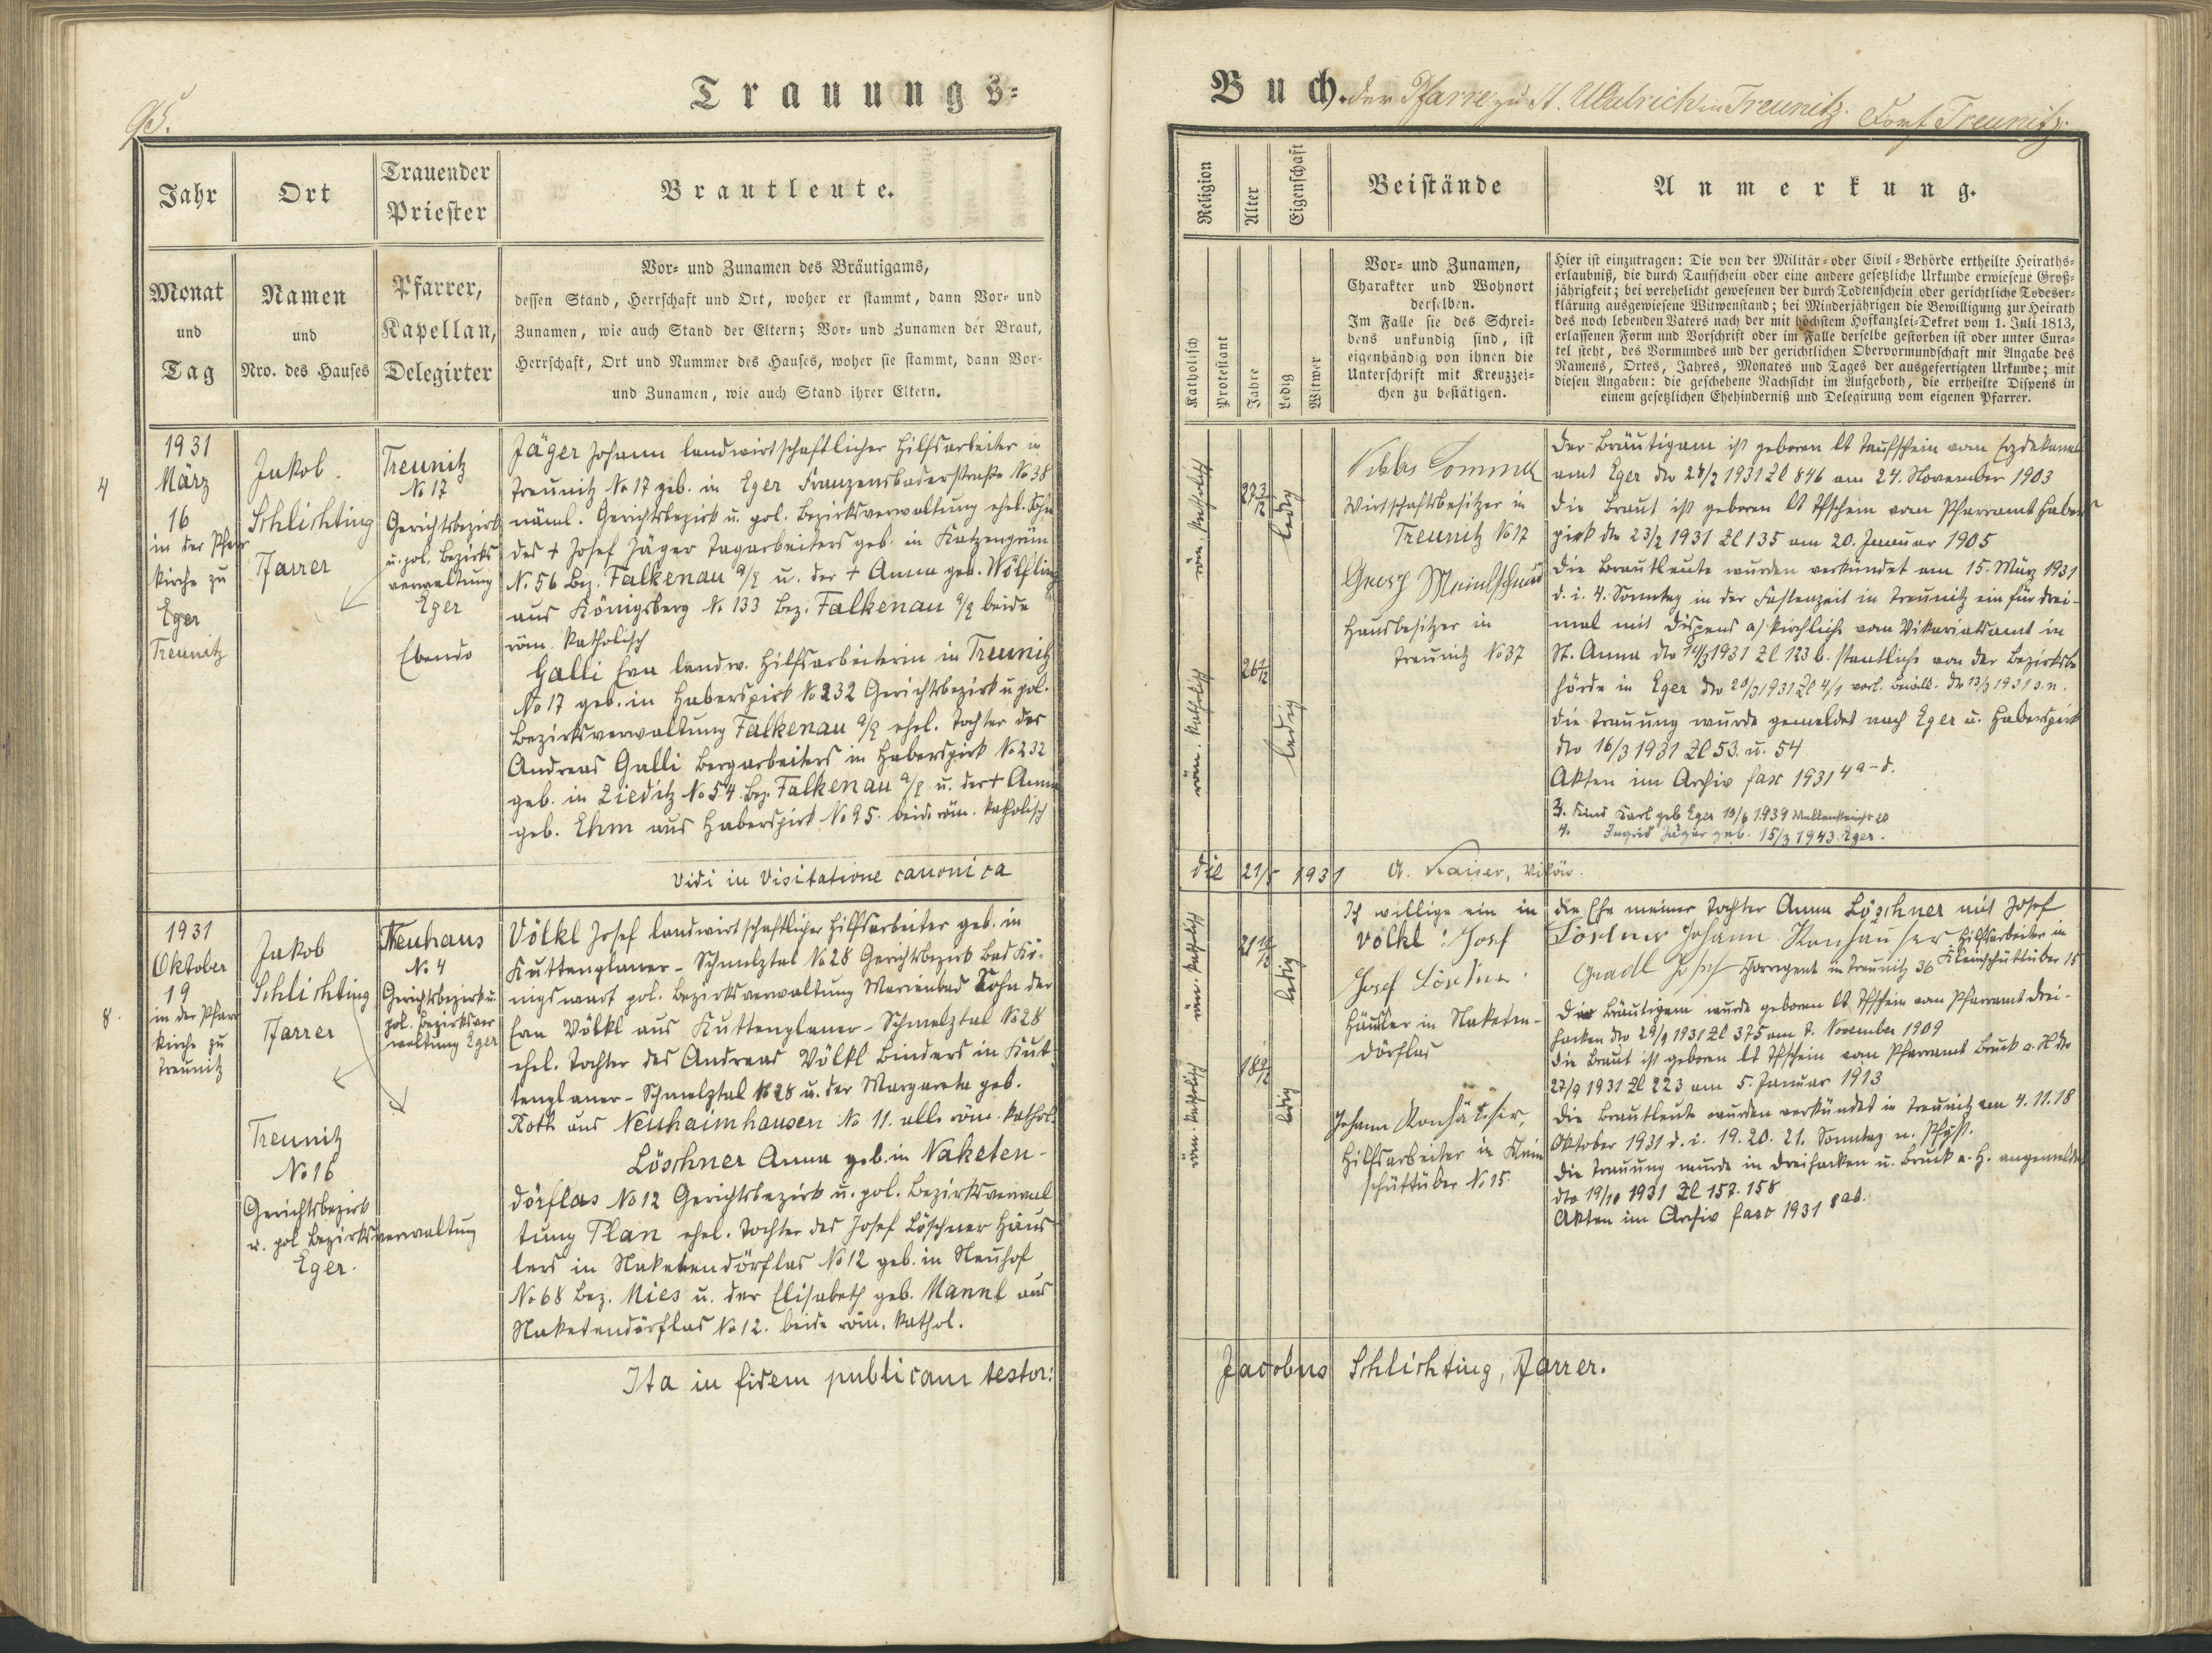 95.
Trauungs-
Jahr
Ort
Trauender
Priester
Brautleute.
Monat
und
Tag
Namen
und
Nro. des Hauses
Pfarrer,
Kapellan,
Delegirter
Vor- und Zunamen des Bräutigams,
dessen Stand, Herrschaft und Ort, woher er stammt, dann Vor- und
Zunamen, wie auch Stand der Eltern; Vor- und Zunamen der Braut,
Herrschaft, Ort und Nummer des Hauses, woher sie stammt, dann Vor-
und Zunamen, wie auch Stand ihrer Eltern.
4
1931
März
16
in der Pfarr
kirche zu
Eger
Treunitz
Jakob
Schlichting
Pfarrer
Treunitz
No 17
Gerichtsbezirk
u. pol. Bezirks
verwaltung
Eger
Ebendo
Jäger Johann landwirtschaftlicher Hilfsarbeiter in
Treunitz No 17 geb. in Eger Franzensbaderstraße No 38
näml. Gerichtsbezirk u. pol. Bezirksverwaltung ehel. Sohn
des + Josef Jäger Tagarbeiters geb. in Katzengrün
No. 56 Bez. Falkenau a/E u. der + Anna geb. Wölfling
aus Königsberg No 133 Bez. Falkenau a/E beide
röm. katholisch
Galli Eva landw. Hilfsarbeiterin in Treunitz
No 17 geb. in Haberspirk No 232 Gerichtsbezirk u. pol.
Bezirksverwaltung Falkenau a/E ehel. Tochter des
Andreas Galli Bergarbeiters in Haberspirk No 232
geb. in Zieditz No 54 Bez. Falkenau a/E u. der + Anna
geb. Ehm aus Haberspirk No 95. beide röm. katholisch
Vidi in Visitatione canonica
8.
1931
Oktober
19
in der Pfarr
kirche zu
Treunitz
Jakob
Schlichting
Pfarrer
Treunitz
No 16
Gerichtsbezirk
u. pol Bezirksverwaltung
Eger.
Neuhaus
No 4
Gerichtsbezirk u.
pol. Bezirksver
waltung Eger
Völkl Josef landwirtschaftlicher Hilfsarbeiter geb. in
Kuttenplaner-Schmelztal No 28 Gerichtsbezirk Bad Kö-
nigswart pol. Bezirksverwaltung Marienbad Sohn der
Eva Völkl aus Kuttenplaner-Schmelztal No 28
ehel. Tochter des Andreas Völkl Binders in Kut-
tenplaner-Schmelztal No 28 u. der Margareta geb.
Roth aus Neuhaimhausen No 11. alle röm. kathol.
Löschner Anna geb. in Naketen-
dörflas No 12 Gerichtsbezirk u. pol. Bezirksverwal
tung Plan ehel. Tochter des Josef Löschner Häus-
lers in Naketendörflas No 12 geb. in Neuhof
No 68 Bez. Mies u. der Elisabeth geb. Mannl aus
Naketendörflas No 12. beide röm. kathol.
Ita in fidem publicam testor:
Buch. der Pfarre zu St. Ulalrich in Treunitz. Treunitz.
Religion
Alter
Eigenschaft
Beistände
Anmerkung.
Katholisch
Protestant
Jahre
Ledig
Witwer
Vor- und Zunamen,
Charakter und Wohnort
derselben.
Im Falle sie des Schrei-
bens unkundig sind, ist
eigenhändig von ihnen die
Unterschrift mit Kreuzzei-
chen zu bestätigen.
Hier ist einzutragen: Die von der Militär- oder Civil-Behörde ertheilte Heiraths-
erlaubniß, die durch Taufschein oder eine andere gesetzliche Urkunde erwiesene Groß-
jährigkeit; bei verehelicht gewesenen der durch Todtenschein oder gerichtliche Todeser-
klärung ausgewiesene Witwenstand; bei Minderjährigen die Bewilligung zur Heirath
des noch lebenden Vaters nach der mit höchstem Hofkanzlei-Dekret vom 1. Juli 1813,
erlassenen Form und Vorschrift oder im Falle derselbe gestorben ist oder unter Cura-
tel steht, des Vormundes und der gerichtlichen Obervormundschaft mit Angabe des
Namens, Ortes, Jahres, Monates und Tages der ausgefertigten Urkunde; mit
diesen Angaben: die geschehene Nachsicht im Aufgeboth, die ertheilte Dispens in
einem gesetzlichen Ehehinderniß und Delegirung vom eigenen Pfarrer.
röm. katholisch
27 3/12
ledig
Wirtschaftsbesitzer in
Treunitz No 17
Hausbesitzer in
Treunitz No 37
röm. katholisch
26 1/12
ledig
Der Bräutigam ist geboren lt Taufschein vom Erzdekanal
amt Eger dto 28/2 1931 Zl 846 am 24. November 1903
Die Braut ist geboren lt Tfschein vom Pfarramt Habers
pirk dto 23/2 1931 Zl 135 am 20. Januar 1905
Die Brautleute wurden verkündet am 15. März 1931
d. i. 4. Sonntag in der Fastenzeit in Treunitz ein für drei-
mal mit Dispens a) kirchliche vom Vikariatsamt in
St. Anna dto 14/3 1931 Zl 123 b. staatliche von der Bezirksbe
hörde in Eger
Die Trauung wurde gemeldet nach Eger u. Haberspirk
dto 16/3 1931 Zl 53. u. 54
Akten im Archiv fasc 1931 4 a-d.
3. Kind Karl geb Eger 10/6 1939
4. Ingrid Jäger geb. 15/3 1943. Eger.
die 21/5 1931 A. Kaiser, Vikär.
röm. katholisch
21 11/12
ledig
röm. katholisch
18 9/12
ledig
Ich willige ein in die Ehe meiner Tochter Anna Löschner mit Josef
Völkl: Josef Löschner Johann Konhäuser Hilfsarbeiter in
Kleinschüttüber 15
Josef Löschner
Gradl Josef Horregent in Treunitz 36
Häusler in Naketen-
dörflas
Johann Konhäuser,
Hilfsarbeiter in Klein
schüttüber No 15.
Der Bräutigam wurde geboren lt Tfschein vom Pfarramt Drei-
hacken dto 29/9 1931 Zl 375 am 7. November 1909
Die Braut ist geboren lt Tfschein vom Pfarramt Bruck a. H dto
27/9 1931 Zl 223 am 5. Januar 1913
Die Brautleute wurden verkündet in Treunitz am 4. 11. 18
Oktober 1931 d. i. 19. 20. 21. Sonntag n. Pfgst.
Die Trauung wurde in Dreihacken u. Bruck a. H. angemeldet
dto 19/10 1931 Zl 157. 158
Akten im Archiv fasc 1931 8ab.
Jacobus Schlichting, Pfarrer.